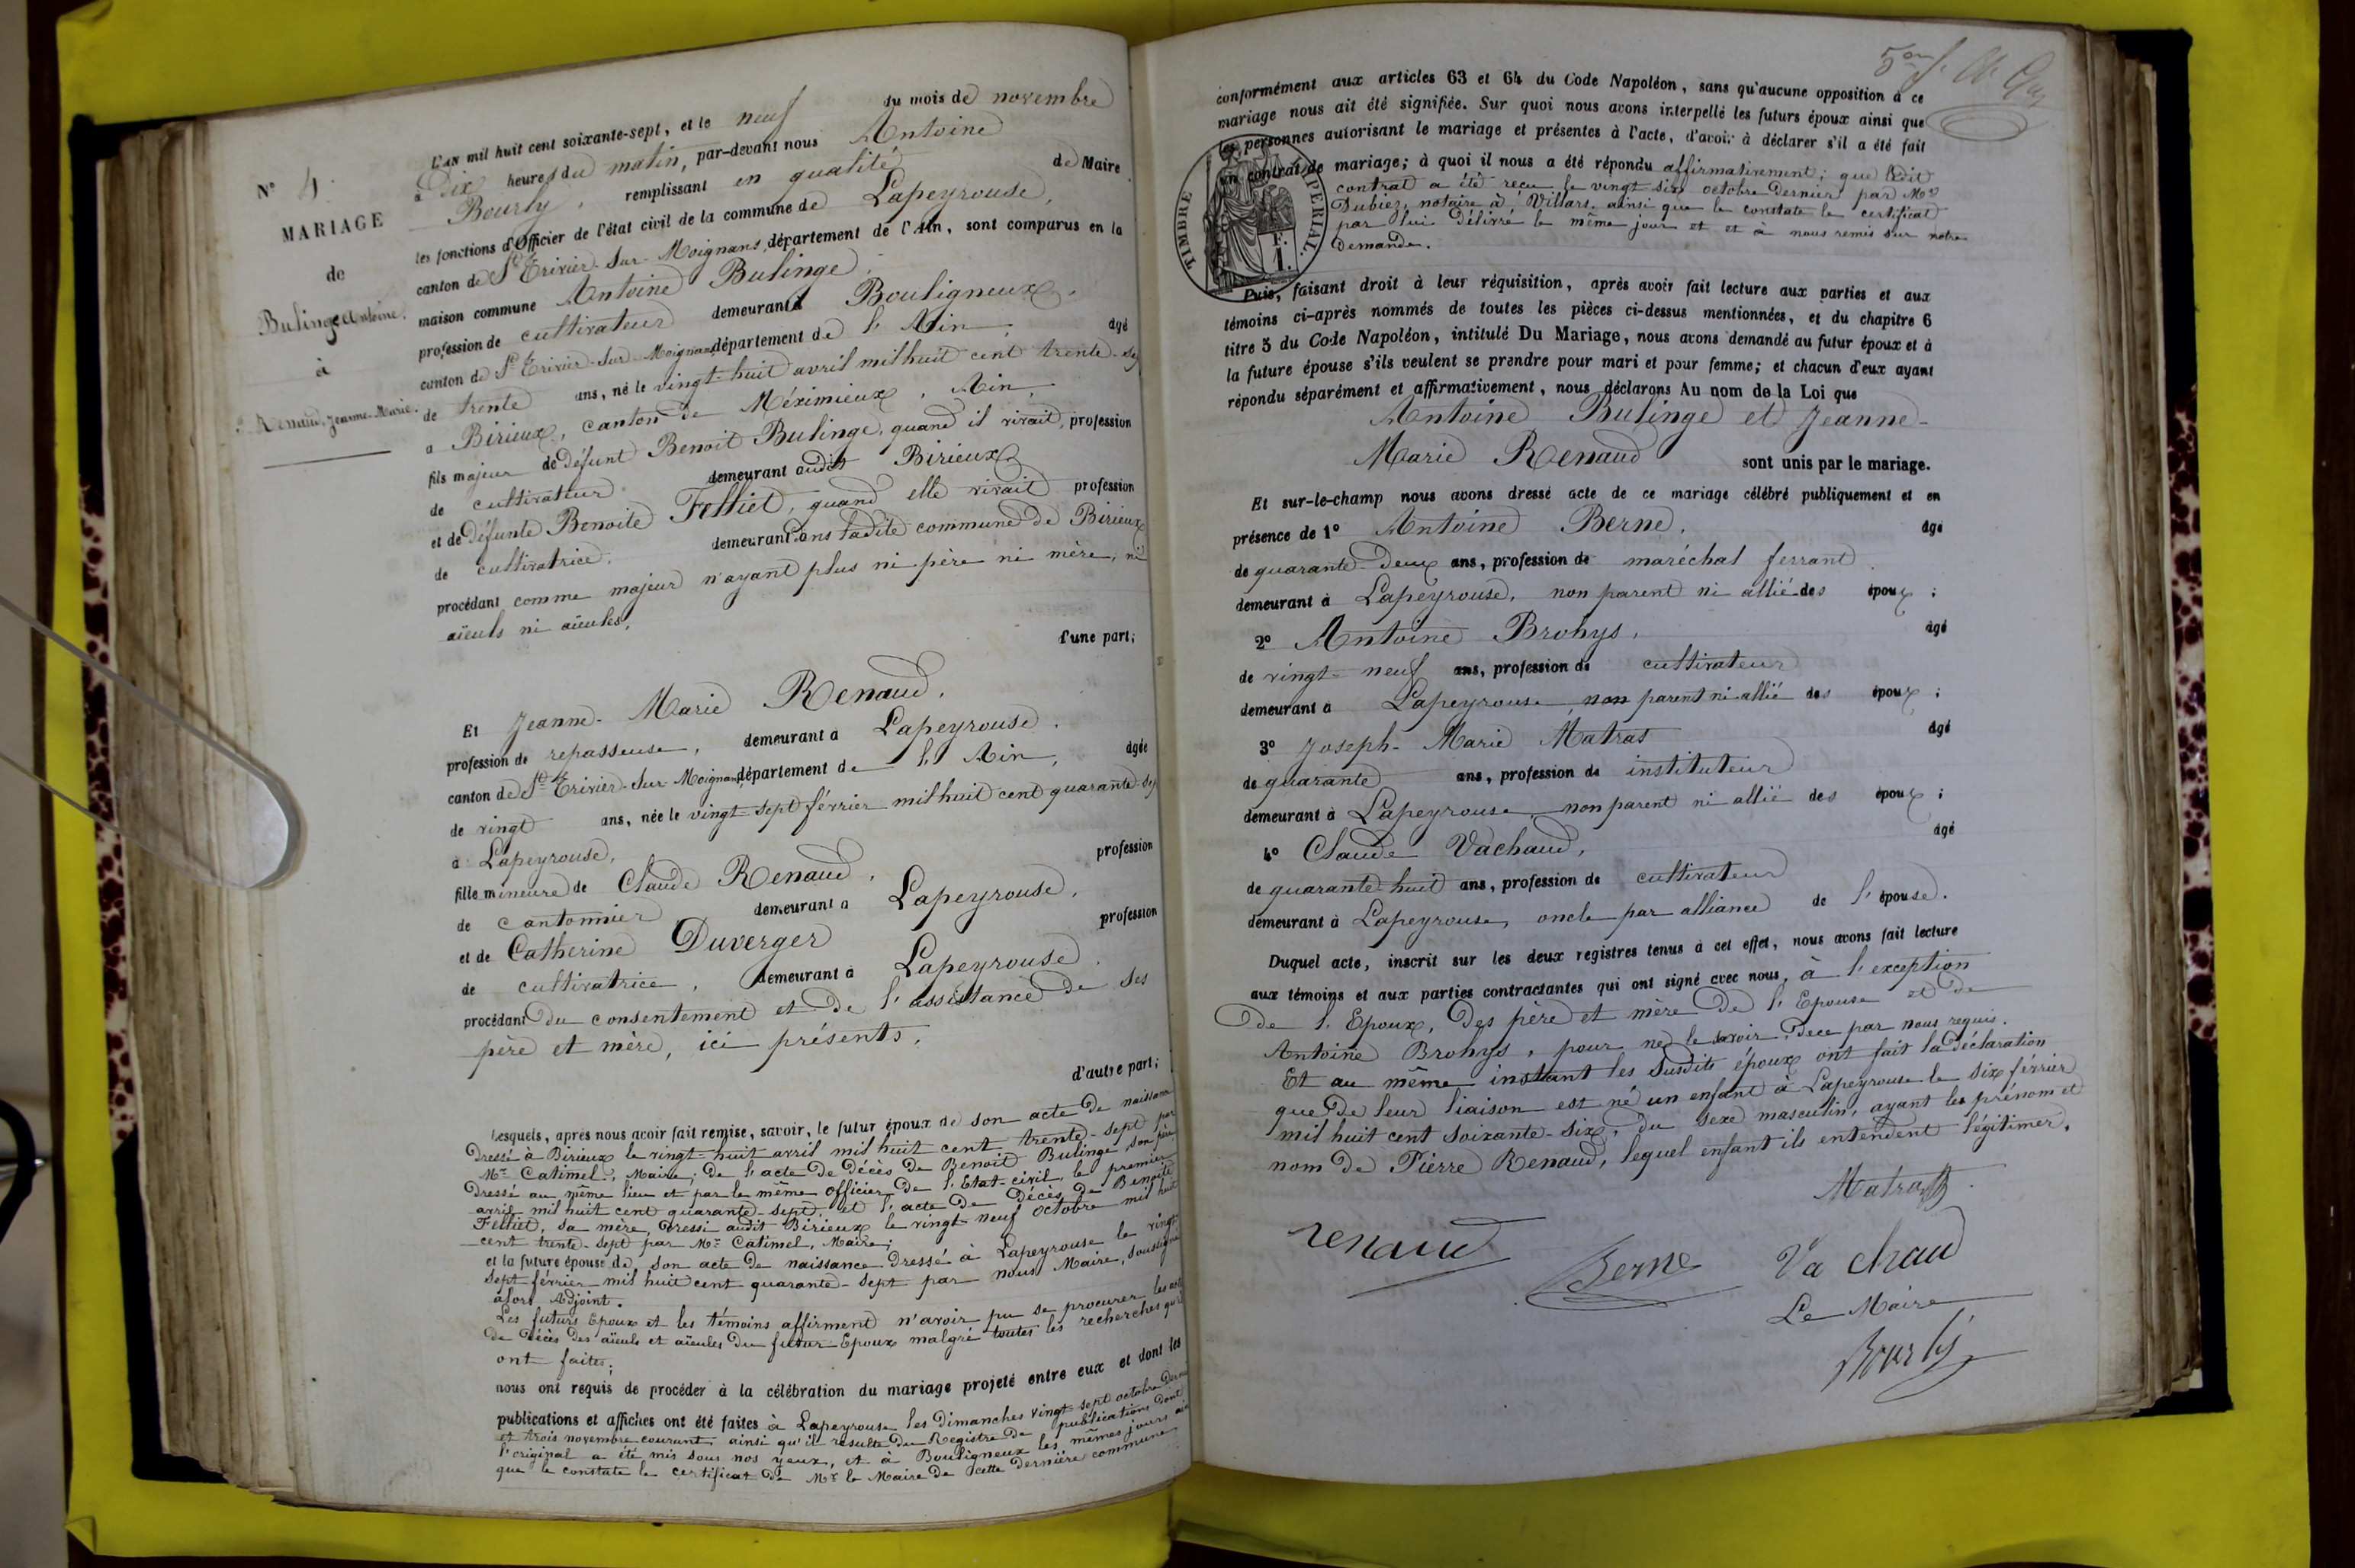 N° 4.
MARIAGE
de
Bulinge Antoine,
à
Renaud, Jeanne-Marie.
L'AN mil huit cent soixante-sept, et le neuf du mois de novembre
à Dix heures du matin, par-devant nous Antoine
Bourly, remplissant en qualité de Maire
les fonctions d'Officier de l'état civil de la commune de Lapeyrouse,
canton de St Trivier-sur-Moignans, département de l'Ain, sont comparus en la
maison commune Antoine Bulinge,
profession de cultivateur demeurant à Bouligneux,
canton de St Trivier-sur-Moignans département de l'Ain, âgé
de trente ans, né le vingt-huit avril mil huit cent trente-sept
à Birieux, canton de Méximieux, Ain,
fils majeur de défunt Benoit Bulinge, quand il vivait, profession
de cultivateur demeurant audit Birieux
et de défunte Benoite Felliet, quand elle vivait profession
de cultivatrice, demeurant dans ladite commune de Birieux
procédant comme majeur n'ayant plus ni père ni mère, ni
aïeuls ni aïeules,
d'une part;
Et Jeanne-Marie Renaud,
profession de repasseuse, demeurant à Lapeyrouse,
canton de St Trivier-sur-Moignans, département de l'Ain, âgée
de vingt ans, née le vingt-sept février mil huit cent quarante-sept
à Lapeyrouse,
fille mineure de Claude Renaud, profession
de cantonnier demeurant à Lapeyrouse,
et de Catherine Duverger profession
de cultivatrice, demeurant à Lapeyrouse,
procédant du consentement et de l'assistance de ses
père et mère, ici présents,
d'autre part;
Lesquels, après nous avoir fait remise, savoir, le futur époux de son acte de naissance
dressé à Birieux le vingt-huit avril mil huit cent trente-sept par
Mr Catimel, Maire; de l'acte de décès de Benoit Bulinge, son père
dressé au même lieu et par le même officier de l'Etat-civil le premier
avril mil huit cent quarante-sept; et l'acte de décès de Benoite
Felliet, sa mère, dressé audit Birieux le vingt-neuf octobre mil huit
cent trente-sept par Mr Catimel, Maire;
et la future épouse de son acte de naissance dressé à Lapeyrouse le vingt
sept février mil huit cent quarante-sept par nous Maire, soussigné
alors Adjoint.
Les futurs Epoux et les témoins affirment n'avoir pu se procurer les actes
de décès des aïeuls et aïeules du futur Epoux malgré toutes les recherches qu'ils
ont faites;
nous ont requis de procéder à la célébration du mariage projeté entre eux et dont les
publications et affiches ont été faites à Lapeyrouse les Dimanches vingt-sept octobre dernier
et trois novembre courant, ainsi qu'il résulte du Registre de publications dont
l'original a été mis sous nos yeux, et à Bouligneux les mêmes jours ainsi
que le constate le certificat de Mr le Maire de cette dernière commune
conformément aux articles 63 et 64 du Code Napoléon, sans qu'aucune opposition à ce
mariage nous ait été signifiée. Sur quoi nous avons interpellé les futurs époux ainsi que
les personnes autorisant le mariage et présentes à l'acte, d'avoir à déclarer s'il a été fait
un contrat de mariage; à quoi il nous a été répondu affirmativement; que ledit
contrat a été reçu le vingt six octobre dernier par Me
Dubiez, notaire à Villars, ainsi que le constate le certificat
par lui délivré le même jour et et à nous remis sur notre
demande.
TIMBRE IMPERIAL.
F.
1.
Puis, faisant droit à leur réquisition, après avoir fait lecture aux parties et aux
témoins ci-après nommés de toutes les pièces ci-dessus mentionnées, et du chapitre 6
titre 5 du Code Napoléon, intitulé Du Mariage, nous avons demandé au futur époux et à
la future épouse s'ils veulent se prendre pour mari et pour femme; et chacun d'eux ayant
répondu séparément et affirmativement, nous déclarons Au nom de la Loi que
Antoine Bulinge et Jeanne-
Marie Renaud sont unis par le mariage.
Et sur-le-champ nous avons dressé acte de ce mariage célébré publiquement et en
présence de 1° Antoine Berne, âgé
de quarante-deux ans, profession de maréchal ferrant
demeurant à Lapeyrouse, non parent ni allié des époux;
2° Antoine Brohys, âgé
de vingt-neuf ans, profession de cultivateur
demeurant à Lapeyrouse, non parent ni allié des époux;
3° Joseph-Marie Matras âgé
de quarante ans, profession de instituteur
demeurant à Lapeyrouse non parent ni allié des époux;
4° Claude Vachaud, âgé
de quarante-huit ans, profession de cultivateur
demeurant à Lapeyrouse, oncle par alliance de l'épouse.
Duquel acte, inscrit sur les deux registres tenus à cet effet, nous avons fait lecture
aux témoins et aux parties contractantes qui ont signé avec nous, à l'exception
de l'Epoux, des père et mère de l'Epouse et de
Antoine Brohys, pour ne le savoir, de ce par nous requis.
Et au même instant les susdits époux ont fait la déclaration
que de leur liaison est né un enfant à Lapeyrouse le six février
mil huit cent soixante-six, du sexe masculin, ayant les prénom et
nom de Pierre Renaud, lequel enfant ils entendent légitimer.
Matras
renaud Berne Vachaud
Le Maire
Bourly